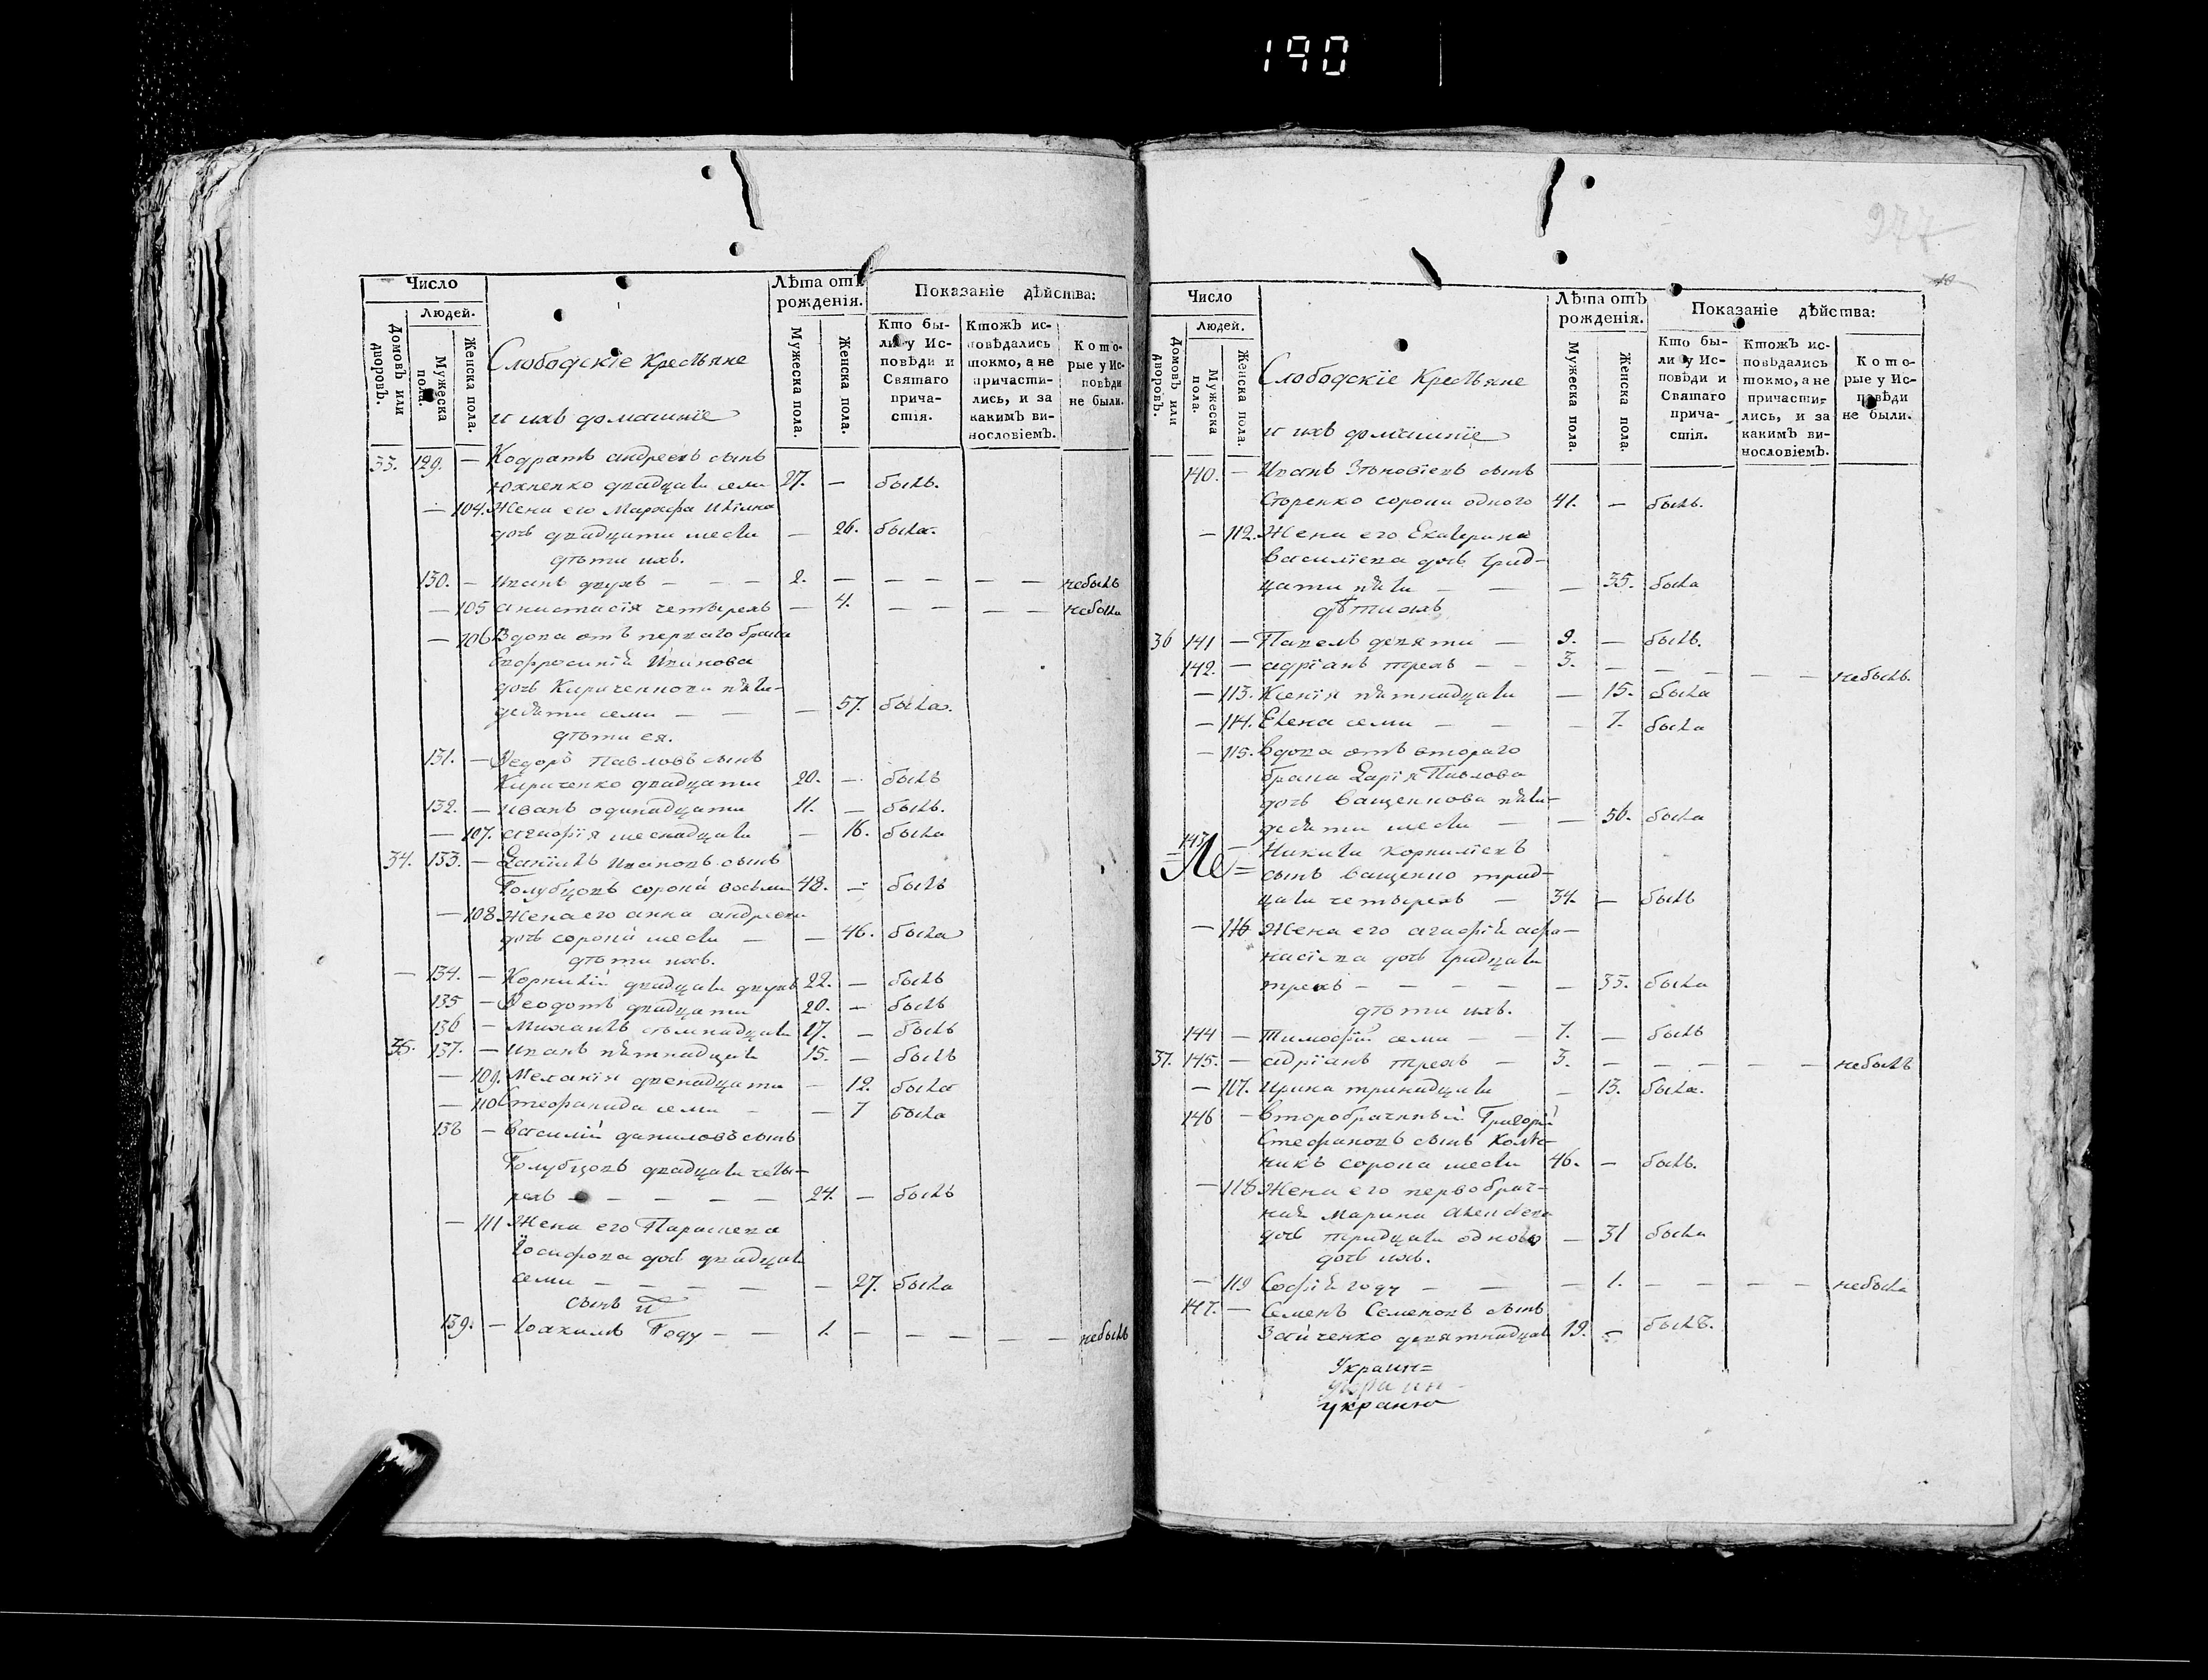 190
Число
Людей.
Домовъ или дворовъ.
Мужеска пола.
Женска пола.
Слободскіе Крестьяне
и ихъ домашніе
Лѣта отъ рожденія.
Мужеска пола.
Женска пола.
Показаніе дѣйства:
Кто бы-
ли у Ис-
повѣди и
Святаго
прича-
стія.
Ктожъ ис-
повѣдались
токмо, а не
причасти-
лись, и за
какимъ ви-
нословіемъ.
Кото-
рые у Ис-
повѣди
не были.
33. 129. — Кодратъ андреевъ сынъ
Юхненко двадцати семи 27. — былъ.
— 104. Жена его Марѳа
дочь двадцати шести — 26. была.
дѣти ихъ.
130. — Иванъ двухъ — — — 2. — — — — — небылъ
— 105 анастасія четырехъ — 4. — — — — небыла
— 106 Вдова отъ перваго брака
Евфросинія Иванова
дочь Кириченкова пяти-
десяти семи — — — 57. была.
дѣти ея.
131. — Ѳедоръ Павловъ сынъ
Кириченко двадцати 20. — былъ
132. — иванъ одинадцати 11. — былъ.
— 107. агафія шеснадцати — 16. была
34. 133. — Даніилъ Ивановъ сынъ
Голубцовъ сорока восьми 48. — былъ
— 108. Жена его анна андреева
дочь сорока шести — — 46. была
дѣти ихъ.
— 134. — Корнилій двадцати двухъ 22. — былъ
135 — Ѳеодотъ двадцати 20. — былъ
136 — Михаилъ семнадцати 17. — былъ
35. 137. — Иванъ пятнадцати 15. — былъ
— 109. Меланія двенадцати — 12. была
— 110 Стефанида семи — — 7 была
138 — Василій даниловъ сынъ
Голубцовъ двадцати четы-
рехъ — — — — — 24. — былъ
— 111 Жена его Параскева
Іосифова дочь двадцати
семи — — — — — 27. была
сынъ
139. — Іоакимъ Году — — 1. — — — — — небылъ
277
10
Число
Людей.
Домовъ или дворовъ.
Мужеска пола.
Женска пола.
Слободскіе Крестьяне
и ихъ домашніе
Лѣта отъ рожденія.
Мужеска пола.
Женска пола.
Показаніе дѣйства:
Кто бы-
ли у Ис-
повѣди и
Святаго
прича-
стія.
Ктожъ ис-
повѣдались
токмо, а не
причасти-
лись, и за
какимъ ви-
нословіемъ.
Кото-
рые у Ис-
повѣди
не были.
140. — Иванъ Зѣновіевъ сынъ
сорока одного 41. — былъ.
— 112. Жена его Екатерина
Василіева дочь трид-
цати пяти — — — 35. была
дѣти ихъ
36 141 — Павелъ девяти — 9. — былъ.
142. — адріанъ трехъ — — 3. — — — — — небылъ.
— 113. Ксенія пятнадцати — 15. была
— 114. Елена семи — — — 7. была
— 115. Вдова отъ втораго
брака Дарія Павлова
дочь Ващенкова пяти-
десяти шести — — 56. была
143 — Никита Корниліевъ
сынъ Ващенко трид-
цати четырехъ — 34. — былъ
— 116 Жена его агафія афа-
насіева дочь тридцати
трехъ — — — — — 33. была
дѣти ихъ.
144 — Тимофей семи — — 7. — былъ
37. 145. — адріанъ трехъ — 3. — — — — — небылъ
— 117. Ирина тринадцати — 13. была.
146 — Второбрачный Григорій
Стефановъ сынъ
сорока шести 46. — былъ.
— 118 Жена его первобрач-
ная Марина
дочь тридцати одного — 31 была
дочь ихъ.
— 119 Софія году — — — 1. — — — — небыла
147. — Семенъ Семеновъ сынъ
Зайченко девятнадцати 19. — былъ.
Украин=
украин
украин